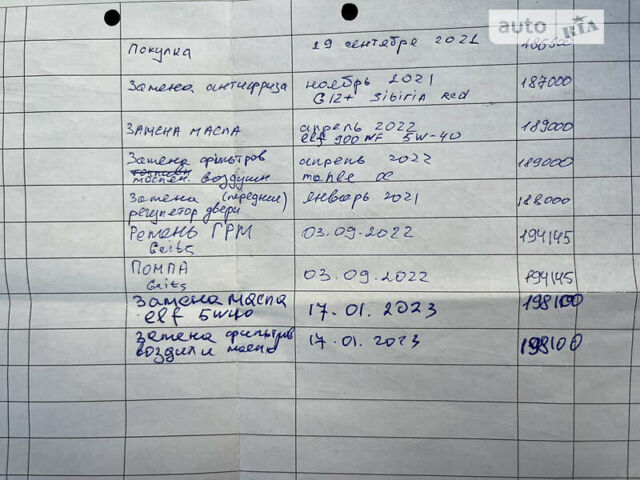 auto RIA
Покупка 19 сентября 2021 186500
Замена антифриза ноябрь 2021 187000
G12+ Sibiria Red
ЗАМЕНА МАСЛА апрель 2022 189000
elf 900 NF 5W-40
Замена фільтров апрель 2022 189000
маслян. воздушн mahle ОС
Замена (передней) январь 2021 188000
регулетор двери
Ремень ГРМ 03.09.2022 194145
Geits
ПОМПА 03.09.2022 194145
Geits
Замена масла 17.01.2023 198100
elf 5W40
замена фильтров 17.01.2023 198100
воздил и масло